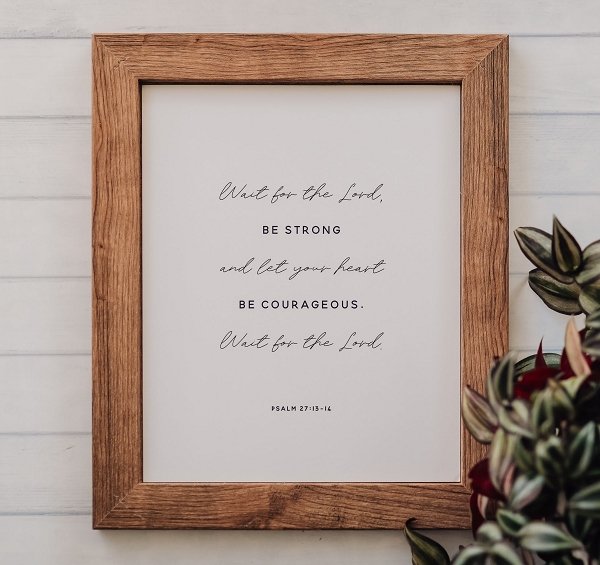 Wait for the Lord,
BE STRONG
and let your heart
BE COURAGEOUS.
Wait for the Lord.
PSALM 27:13-14